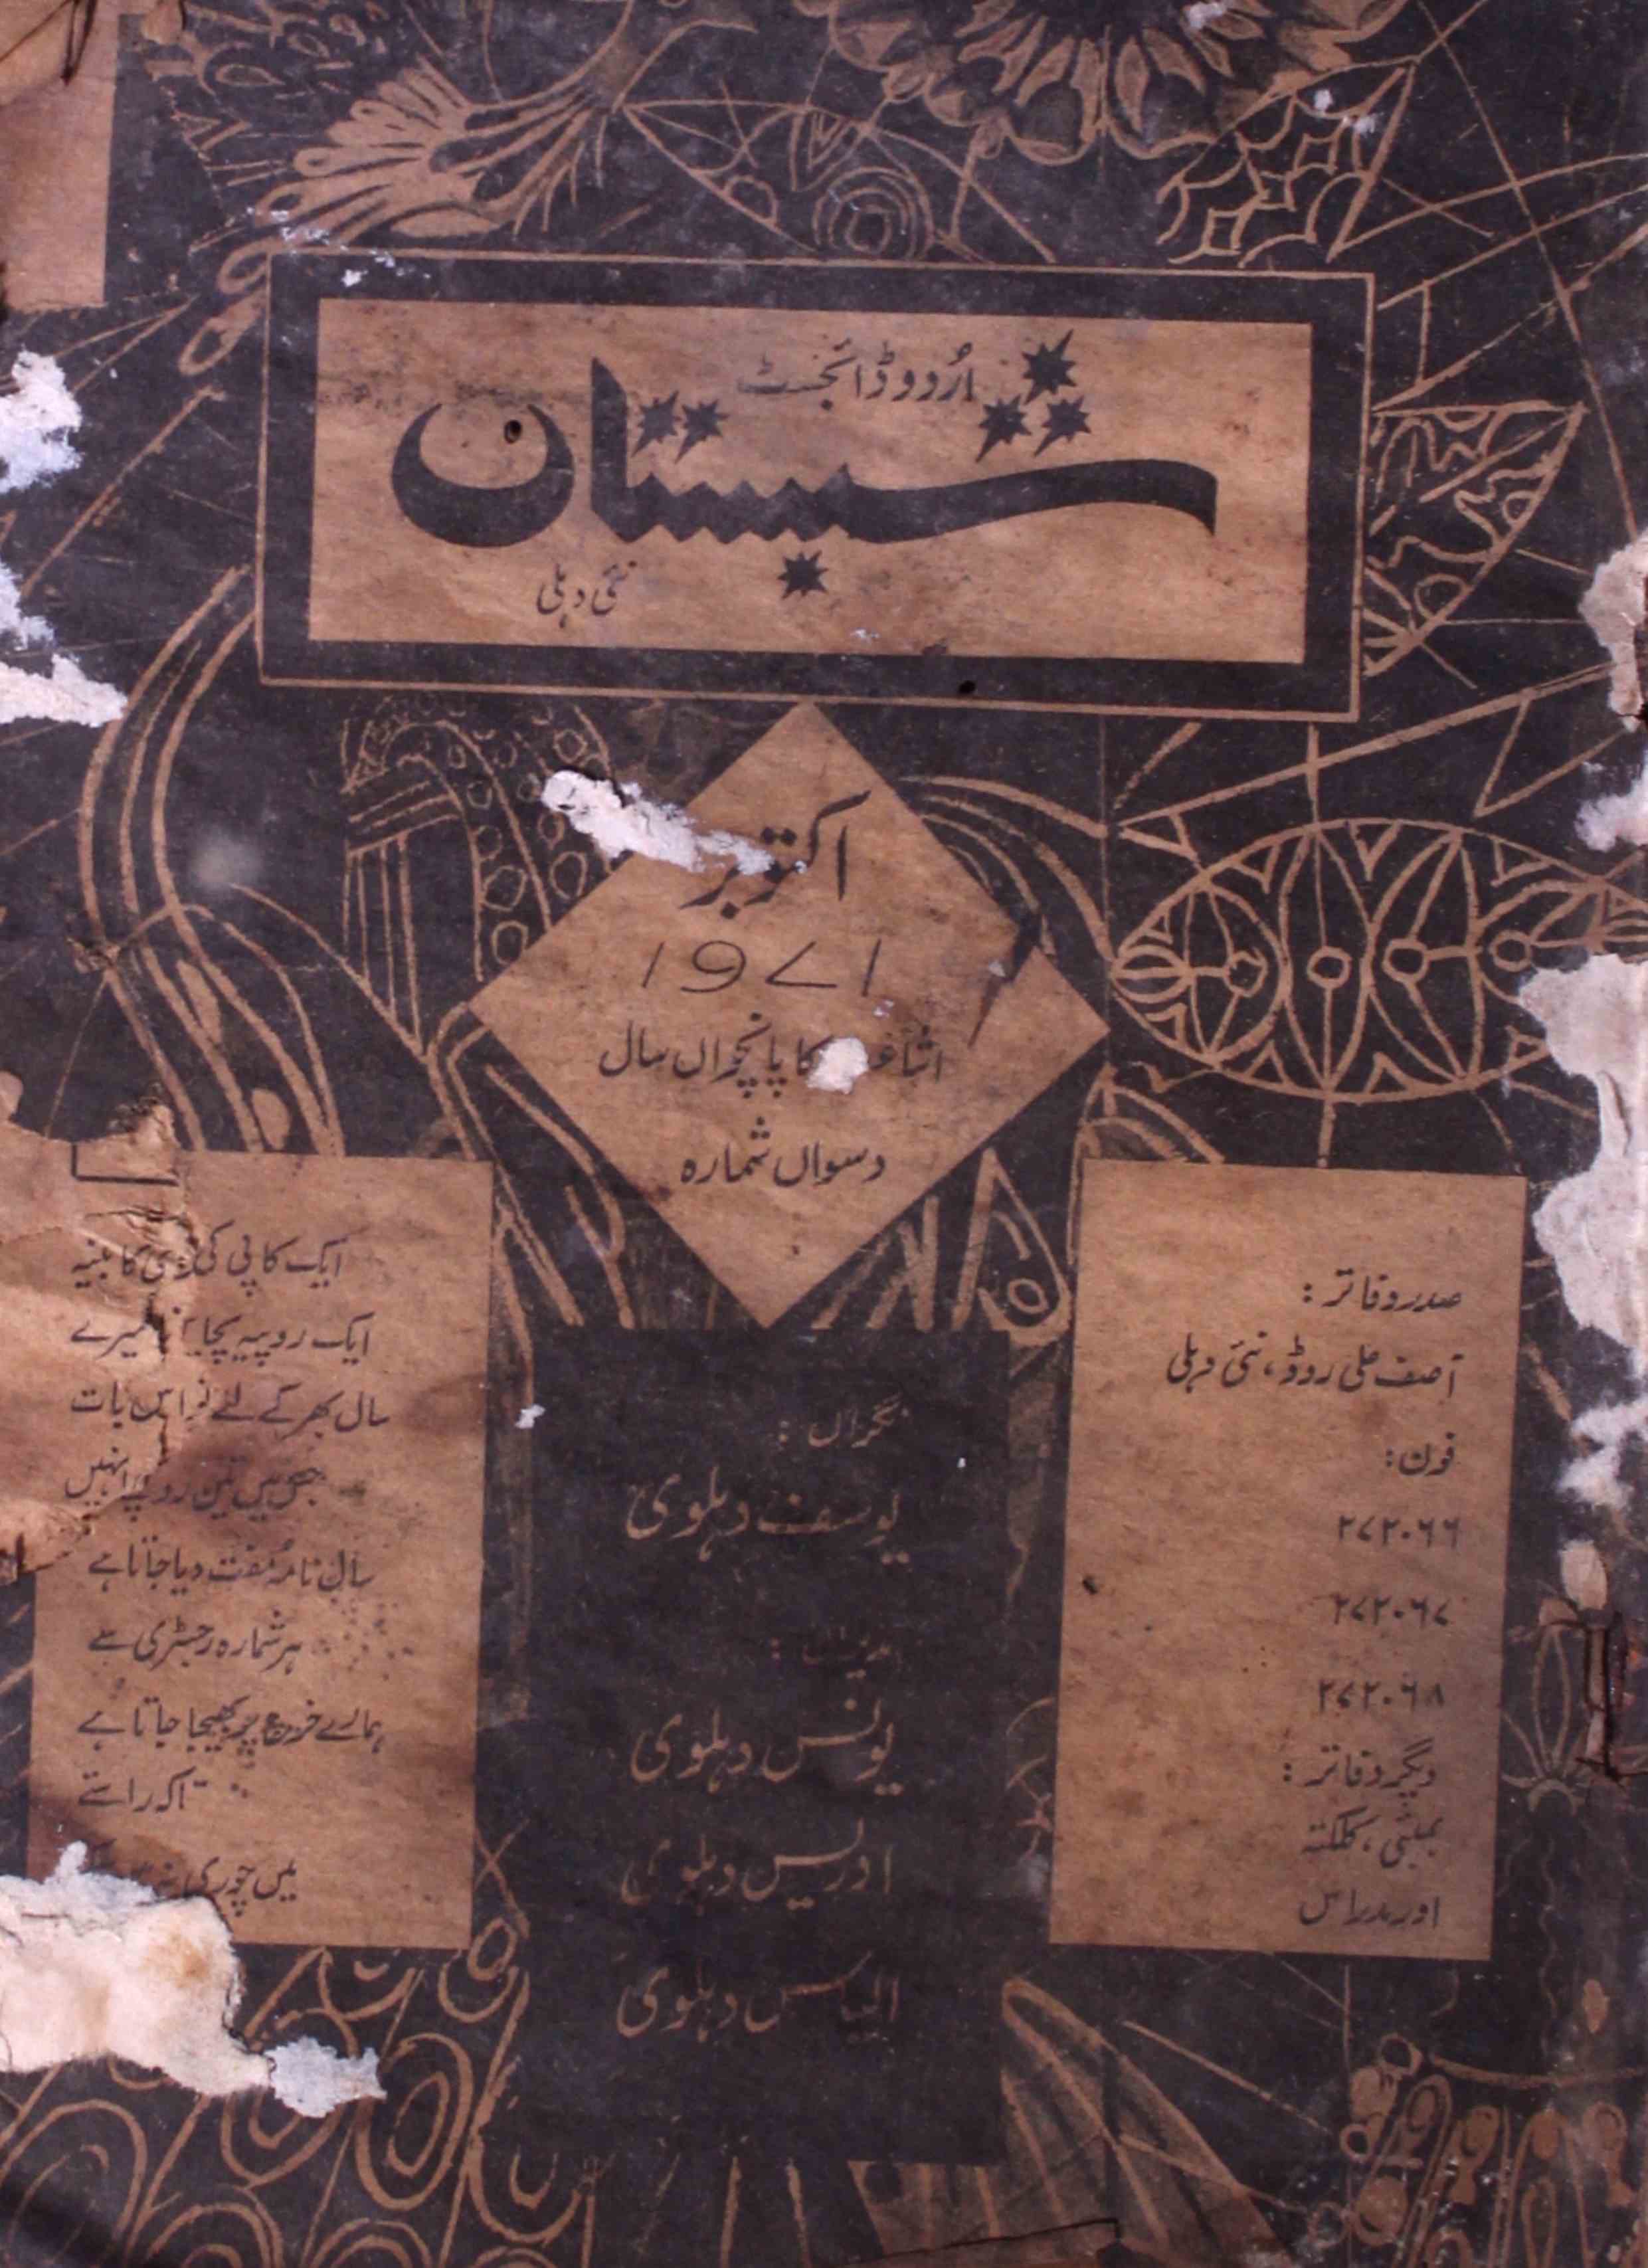 اُردو ڈائجسٹ
شبستان
نئی دہلی
اکتوبر
۱۹۷۱
کا پانچواں سال
دسواں شمارہ
صدر دفاتر :
آصف علی روڈ، نئی دہلی
فون :
۲۷۲۰۶۶
۲۷۲۰۶۷
۲۷۲۰۶۸
دیگر دفاتر :
بمبئی، کلکتہ
اور مدراس
نگراں :
یوسف دہلوی
یونس دہلوی
ادریس دہلوی
الیاس دہلوی
ایک کاپی کی
ایک روپیہ پچاس پیسے
سال بھر کے لئے
جس میں تین روپے
سال نامہ مفت دیا جاتا ہے
ہر شمارہ رجسٹری سے
ہمارے خرچ پر بھیجا جاتا ہے
تاکہ راستے
میں چوری